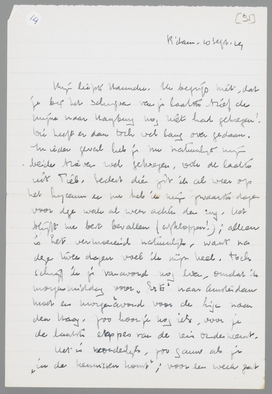 14
[31]
R'dam - 10 Sept. 29
Mijn liefste Hannie. Ik begrijp niet, dat
je bij het schrijven van je laatste brief de
mijne naar Hamburg nog niet had gekregen!
Die heeft er dan toch wel lang over gedaan.
In ieder geval heb je nu natuurlijk mijn
beide brieven wel gekregen, ook de laatste
uit Tiel. Sedert die zit ik al weer op
het bureau en nu heb ik mijn zwaarste dagen
voor deze week al weer achter den rug. Het
blijft me best bevallen (afkloppen!); alleen
is het vermoeiend natuurlijk, want na
deze twee dagen voel ik mijn heel. Toch
schrijf ik je vanavond nog even, omdat ik
morgenmiddag voor naar Amsterdam
moet en morgenavond voor de bijz. naar
den Haag. Zoo hoor je nog iets, voor je
de laatste etappes van de reis onderneemt.
Het is heerlijk, zoo gauw als je
in de komt; voor een week pas